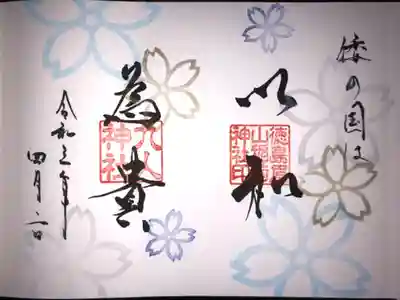 倭の国は
以和
為貴
八人
神社
神社印
令和三年
四月二日